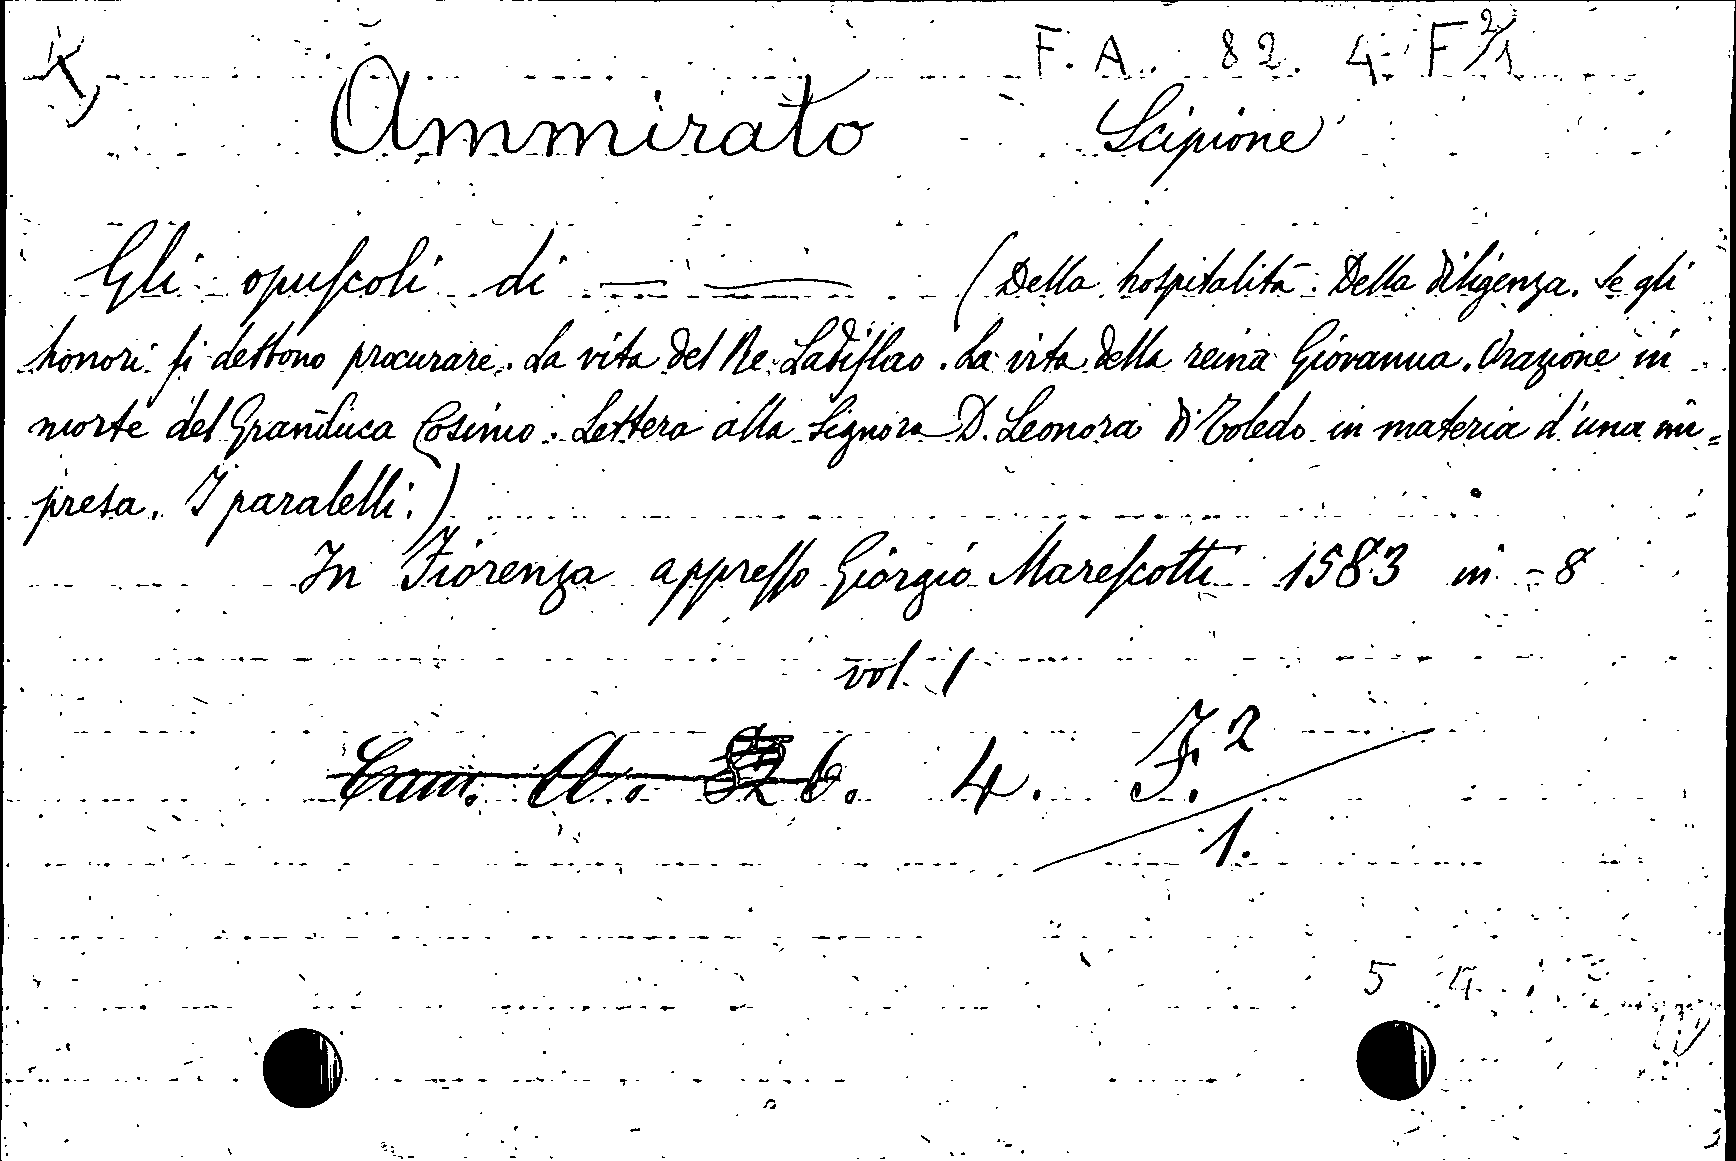 F. A. 82. 4. F 2/1
Ammirato Scipione
Gli opuſcoli di — — (Della hospitalità. Della diligenza. Se gli
honori ſi debbono procurare. La vita del Re Ladiſlao. La vita della reina Giovanna. Orazione in
morte del Granduca Cosimo. Lettera alla Signora D. Leonora di Toledo in materia d'una im=
presa. I paralelli.)
In Fiorenza appreſſo Giorgio Mareſcotti 1583 in-8
vol. 1
Cam. A. 4. F.2
1.
5 4